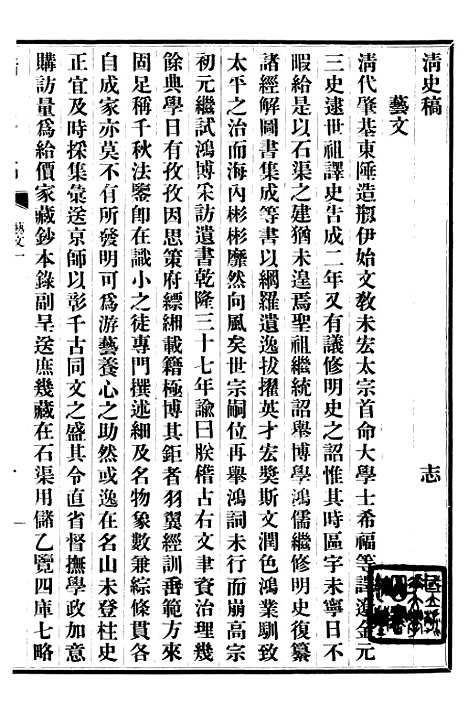 清史稿
志
藝文
清代肇基東陲造邦伊始文敎未宏太宗首命大學士希福等譯遼金元
三史逮世祖譯史吿成二年又有議修明史之詔惟其時區宇未寧日不
暇給是以石渠之建猶未遑焉聖祖繼統詔舉博學鴻儒繼修明史復纂
諸經解圖書集成等書以網羅遺逸拔擢英才宏獎斯文潤色鴻業馴致
太平之治而海內彬彬靡然向風矣世宗嗣位再舉鴻詞未行而崩高宗
初元繼試鴻博采訪遺書乾隆三十七年諭曰朕稽古右文聿資治理幾
餘典學日有孜孜因思策府縹緗載籍極博其鉅者羽翼經訓垂範方來
固足稱千秋法鑒卽在識小之徒專門撰述細及名物象數兼綜條貫各
自成家亦莫不有所發明可爲游藝養心之助然或逸在名山未登柱史
正宜及時採集彙送京師以彰千古同文之盛其令直省督撫學政加意
購訪量爲給價家藏鈔本錄副呈送庶幾藏在石渠用儲乙覽四庫七略
藝文一
一